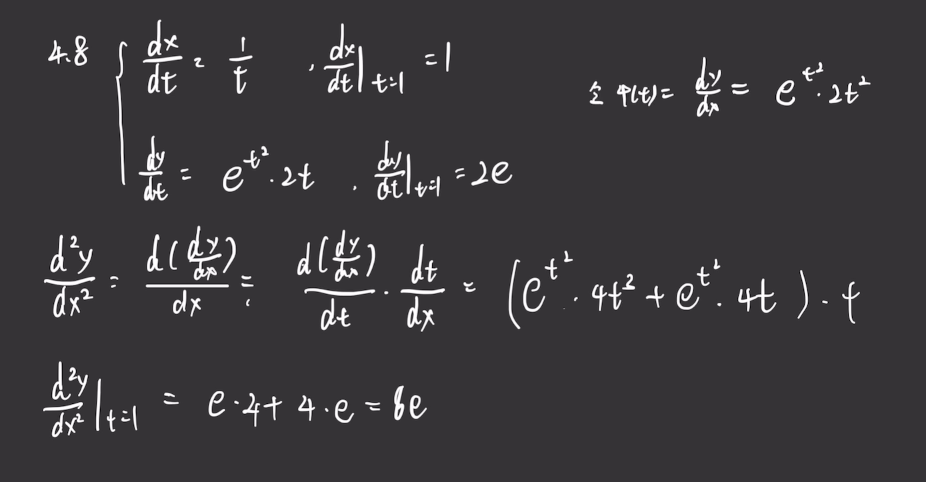 4.8 { dx/dt = 1/t , dx/dt|t=1 = 1
令 φ(t) = dy/dx = e^{t²}·2t²
dy/dt = e^{t²}·2t , dy/dt|t=1 = 2e
d²y/dx² = d(dy/dx)/dx = d(dy/dx)/dt · dt/dx = (e^{t²}·4t³ + e^{t²}·4t)·t
d²y/dx²|t=1 = e·4 + 4·e = 8e